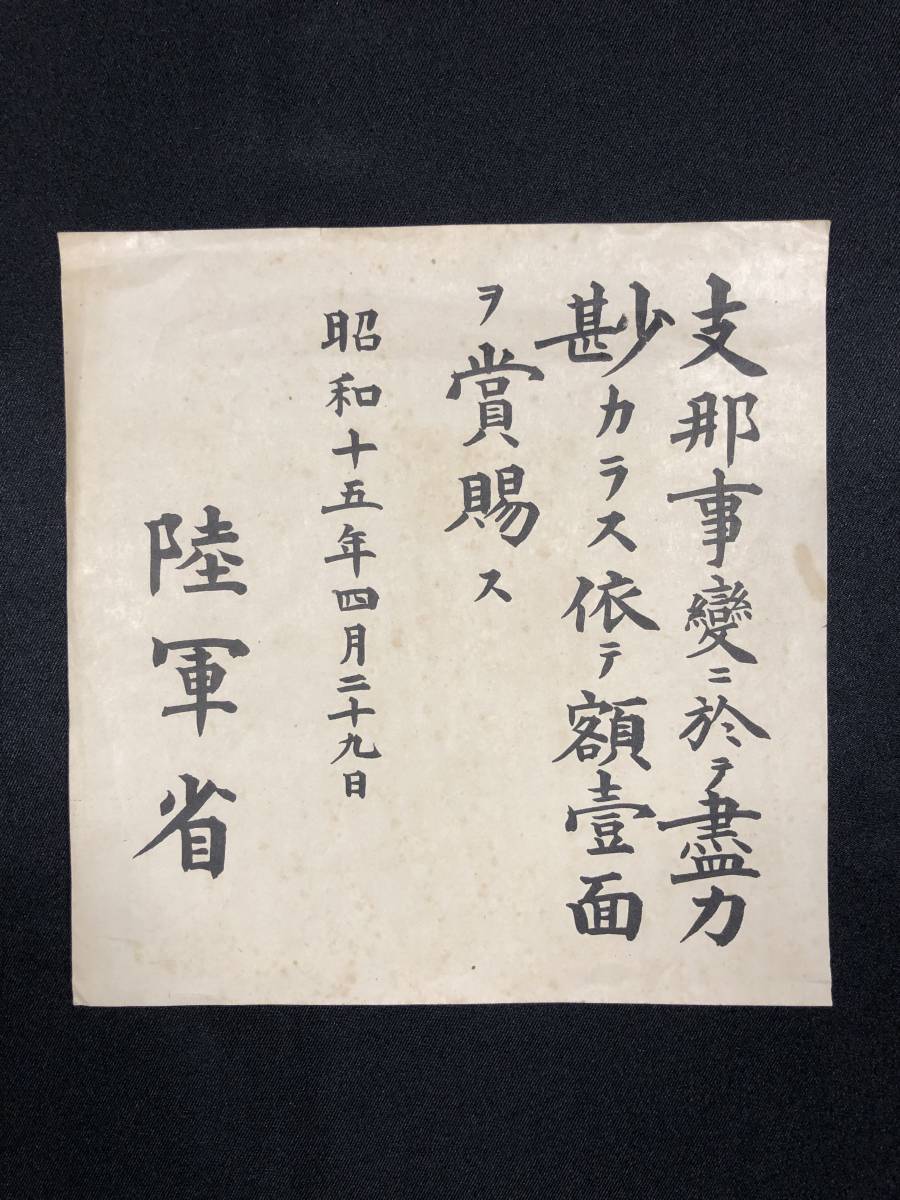 支那事變ニ於テ盡力
尠カラス依テ額壹面
ヲ賞賜ス
昭和十五年四月二十九日
陸軍省